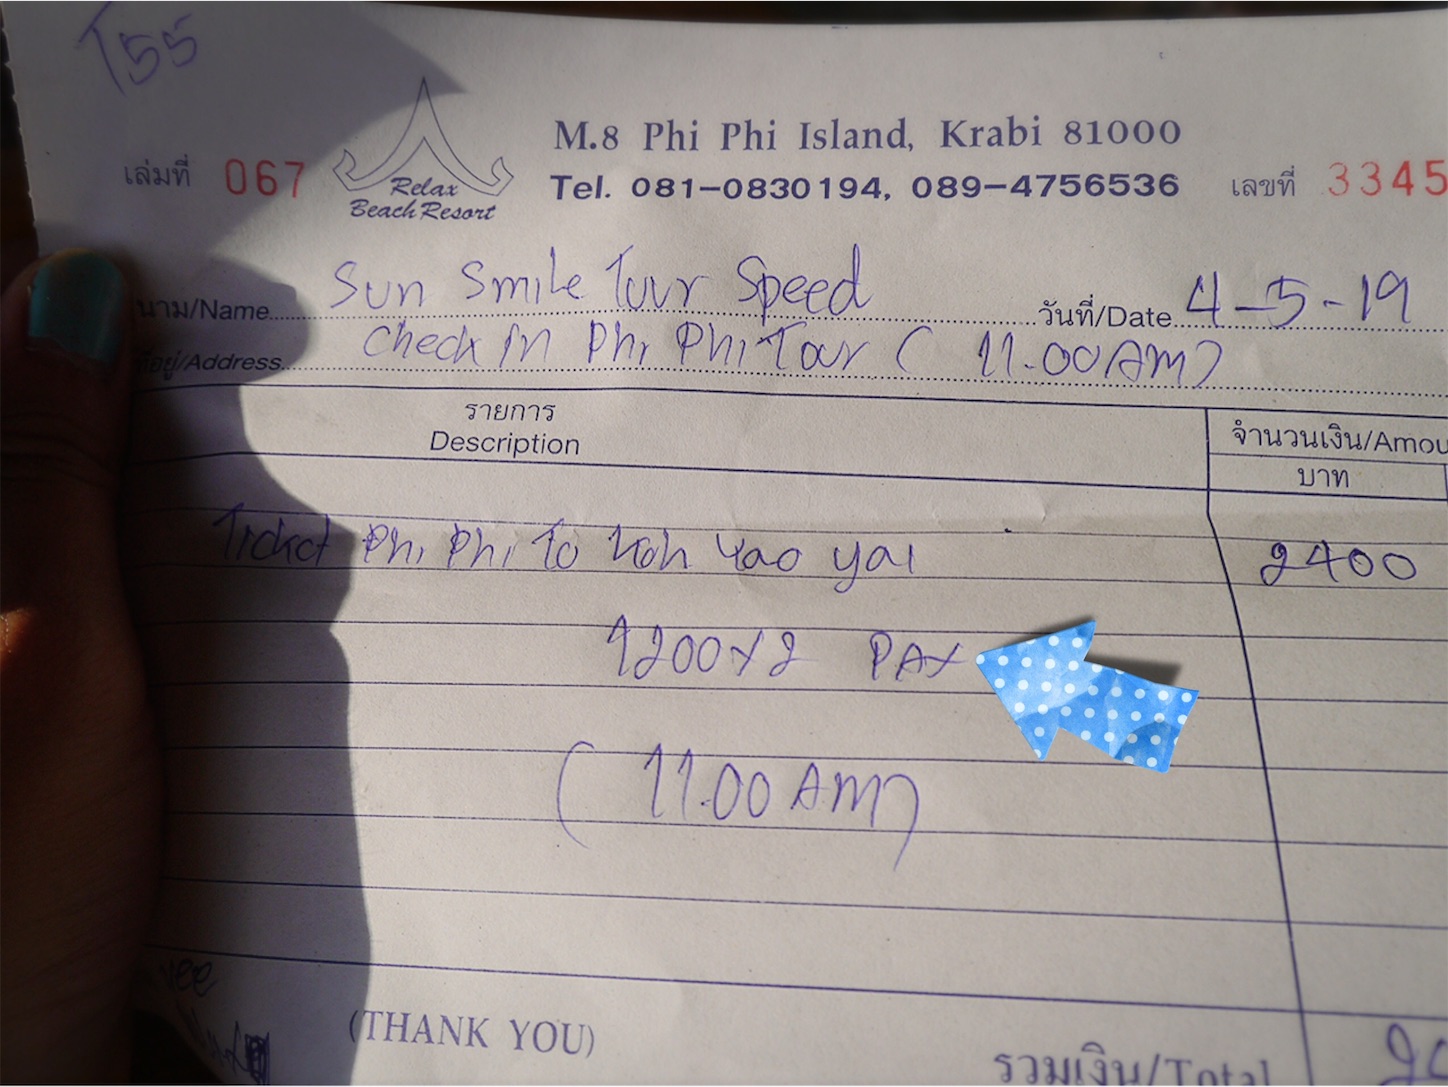 T55
M.8 Phi Phi Island, Krabi 81000
เล่มที่ 067 Relax Tel. 081-0830194, 089-4756536 เลขที่ 3345
Beach Resort
นาม/Name Sun Smile Tour Speed วันที่/Date 4-5-19
ที่อยู่/Address Check in Phi Phi Tour ( 11.00 AM)
รายการ จำนวนเงิน/Amou
Description บาท
Ticket Phi Phi To Koh Yao yai 2400
1200x2 PAX
( 11.00 AM)
(THANK YOU)
รวมเงิน/Total